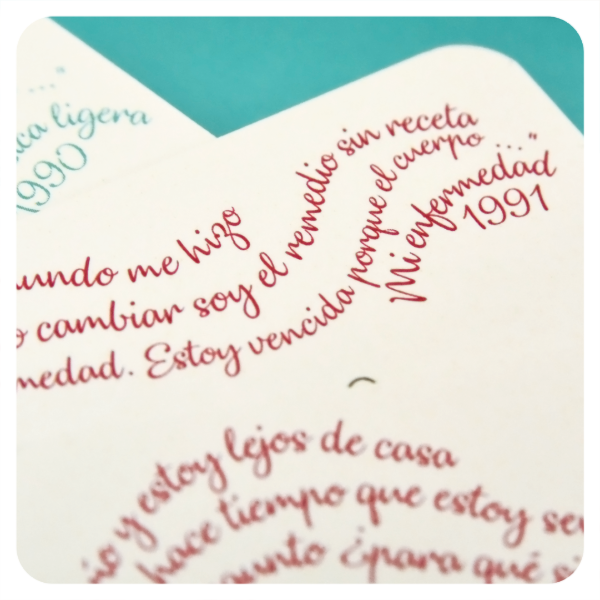 ..."
ligera
1990
me hizo
cambiar soy el remedio sin receta
Estoy vencida porque el cuerpo
Mi enfermedad ..."
1991
y estoy lejos de casa
hace tiempo que estoy
¿para qué